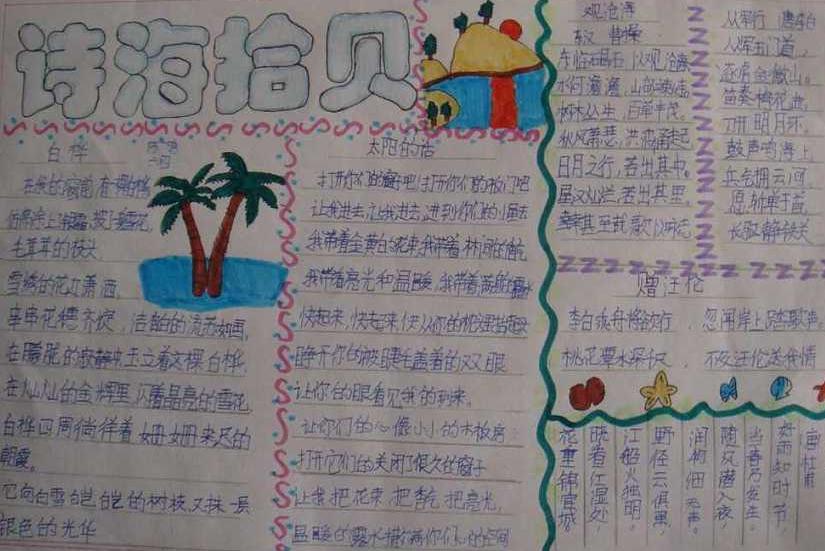 诗海拾贝
白桦
在我的窗前,有一棵白桦,
仿佛涂上银霜,披了雪花,
毛茸茸的枝头
雪绣的花边潇洒,
串串花穗齐绽,洁白的流苏如画,
在朦胧的寂静中,玉立着这棵白桦,
在灿灿的金辉里,闪着晶亮的雪花,
白桦四周徜徉着,姗姗来迟的
朝霞。
它向白雪皑皑的树枝又抹一层
银色的光华
太阳的话
打开你们的窗子吧,打开你们的板门吧
让我进去,让我进去,进到你们的小屋去
我带着金黄的花束,我带着林间的香气
我带着亮光和温暖,我带着满身的露水
快起来,快起来,快从你的枕头里抬起头
睁开你的被睫毛盖着的双眼
让你的眼看见我的到来
让你们的心像小小的木板房
打开它们的关闭了很久的窗子
让我把花束,把香气,把亮光,
温暖的露水撒满你们心的空间
观沧海
东汉 曹操
东临碣石,以观沧海
水何澹澹,山岛竦峙,
树木丛生,百草丰茂,
秋风萧瑟,洪波涌起
日月之行,若出其中。
星汉灿烂,若出其里,
幸甚至哉,歌以咏志
从军行 唐 李白
从军玉门道,
逐虏金微山。
笛奏梅花曲,
刀开明月环,
鼓声鸣海上,
兵气拥云间,
愿斩单于首,
长驱静铁关
赠汪伦
李白乘舟将欲行,忽闻岸上踏歌声,
桃花潭水深千尺,不及汪伦送我情
唐 杜甫
好雨知时节
当春乃发生。
随风潜入夜,
润物细无声。
野径云俱黑,
江船火独明。
晓看红湿处,
花重锦官城